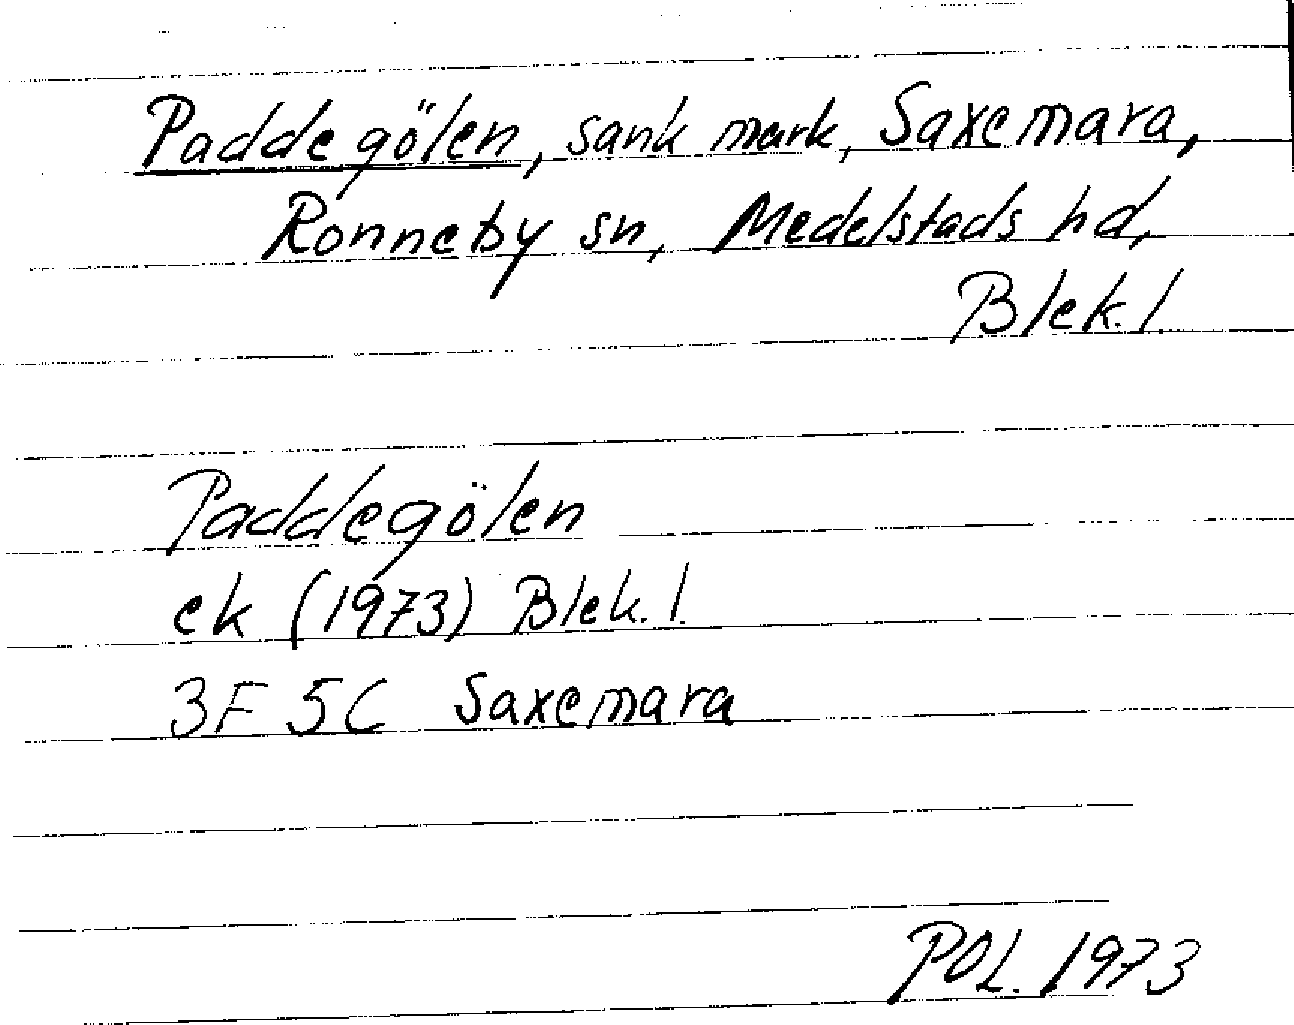 Paddegölen, sank mark, Saxemara,
Ronneby sn, Medelstads hd,
Blek. l.
Paddegölen
ek (1973) Blek. l.
3F 5C Saxemara
POL. 1973